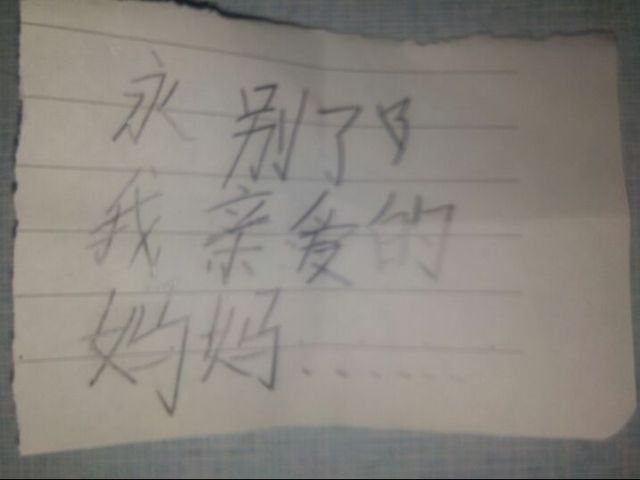 永别了
我亲爱的
妈妈......